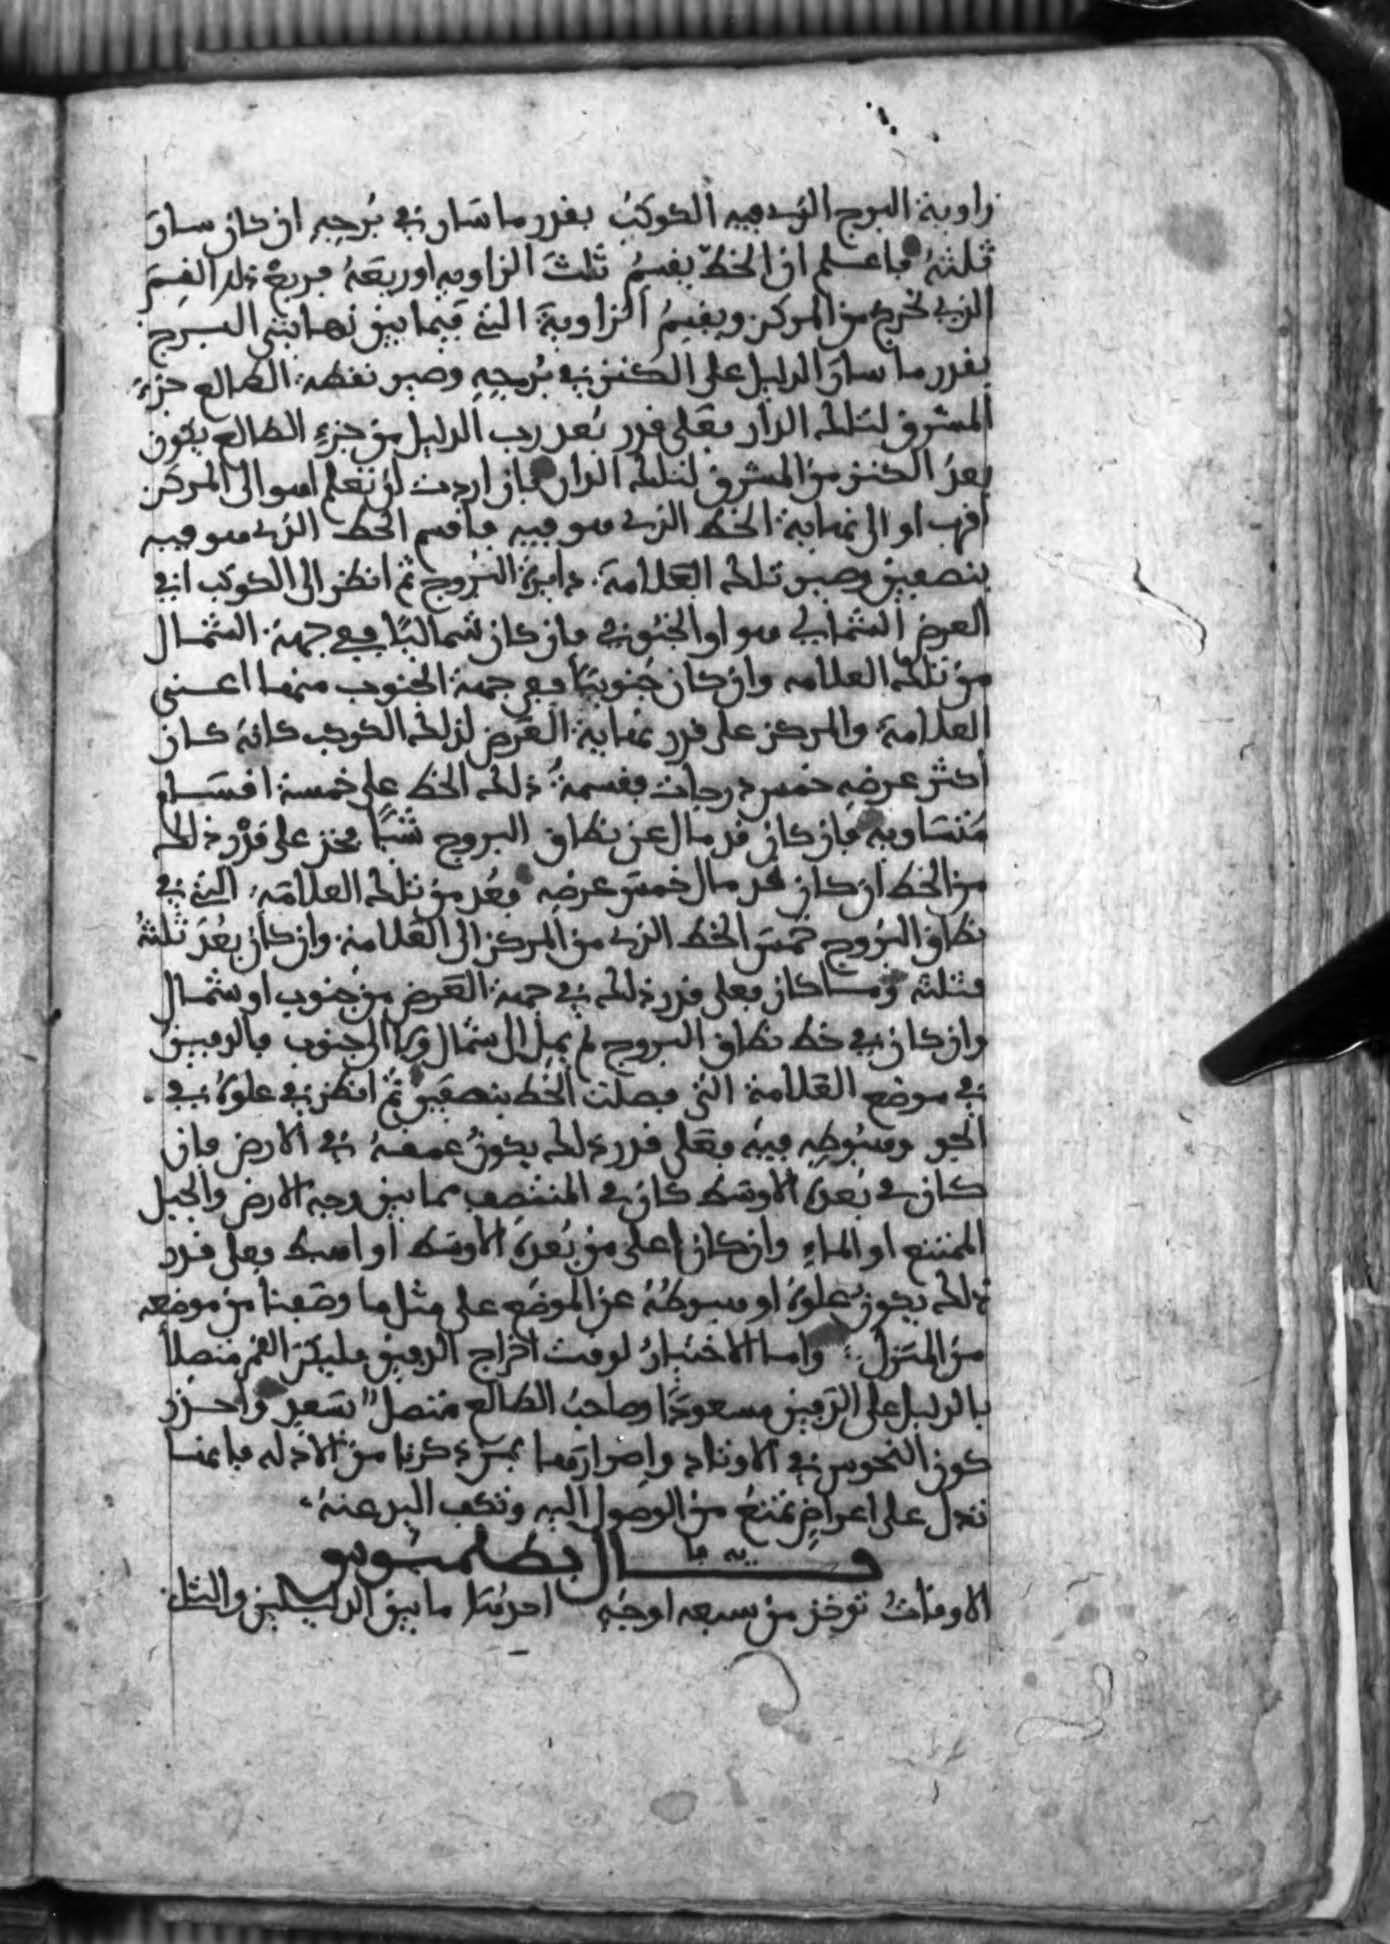 زاوية البرج الذي فيه الكوكب بقدر ما سار في برجه ان كان سار
ثلثه فاعلم ان الخط يقسم ثلث الزاويه او ربعه فربع ذلك القسم
الذي تخرج من المركز ويقسم الزاوية التي فيما بين نهايتي البرج
بقدر ما سار الدليل على الكنز في برجه وصير نقطة الطالع جزء
المشرق لتلك الدار فعلى قدر بعد رب الدليل من جزء الطالع يكون
بعد الكنز من المشرق لتلك الدار فان اردت ان تعلم اهو الى المركز
اقرب او الى نهاية الخط الذي هو فيه فاقسم الخط الذي هو فيه
بنصفين وصير تلك العلامة دايرة البروج ثم انظر الى الكوكب افي
العرض الشمالي هو او الجنوبي فان كان شماليا ففي جهة الشمال
من تلك العلامه وان كان جنوبيا ففي جهة الجنوب منها اعني
العلامة والمركز على قدر نهاية العرض لذلك الكوكب كانه كان
اكثر عرضه خمس درجات فقسمة ذلك الخط على خمسة اقسام
متساويه فان كان قد مال عن نطاق البروج شيا فخذ على قدر ذلك
من الخط ان كان قد مال خمس عرضه فبعد من تلك العلامة التي في
نطاق البروج خمس الخط الذي من المركز الى العلامة وان كان بعد ثلثه
فثلثه وما كان فعلى قدر ذلك في جهة العرض من جنوب او شمال
وان كان في خط نطاق البروج لم يمل الى شمال ولا الى جنوب فالدفين
في موضع العلامة التي فصلت الخط بنصفين ثم انظر في علوه في
الجو وهبوطه فيه فعلى قدر ذلك يكون عمقه في الارض فان
كان في بعده الاوسط كان في المنتصف مما بين وجه الارض والجبل
الممتنع او الماء وان كان اعلى من بعده الاوسط او اهبط فعلى قدر
ذلك يكون علوه او هبوطه عن الموضع على مثل ما وصفنا من موضعه
من المنزل واما الاختيار لوقت اخراج الدفين فليكن القمر متصلا
بالدليل على الدفين مسعودا وصاحب الطالع متصل بسعد واحذر
كون النحوس في الاوتاد واضرارها بمن ذكرنا من الادله فانها
تدل على اعراض تمنع من الوصول اليه وتكف اليد عنه
قال بطلميوس
الاوقات توخذ من سبعه اوجه احدها ما بين الدليلين والثان